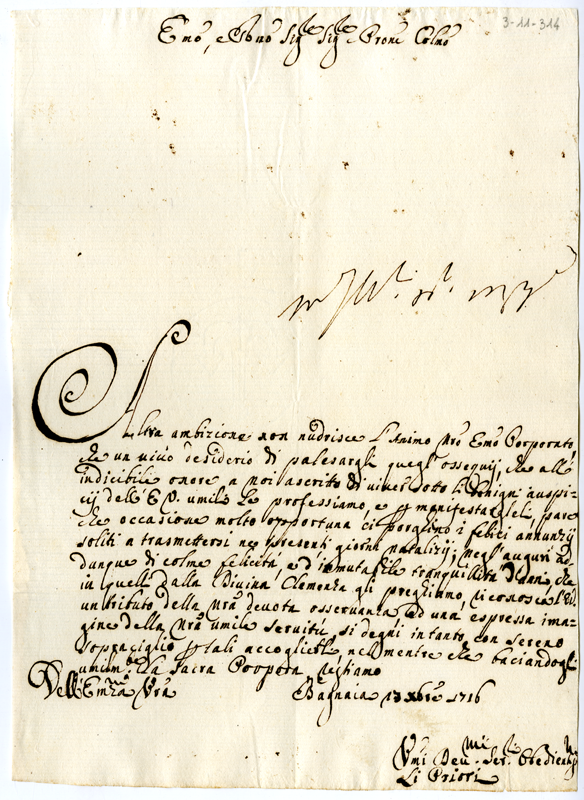 3-11-314
Emo, e Rmo Sig.r Sig.r e Prone Colmo
Altra ambizione non nudrisce l'Animo Nro Emo Porporato,
che un vivo desiderio di palesargli quegl'ossequij, che all'
indicibile onore, a noi ascritto di viver sotto li benigni auspi-
cij dell'E.V. umile le professiamo, e p manifestarglieli, pare
che occasione molto opportuna ci porghino i felici annunzij
soliti a trasmettersi ne presenti giorni natalizij; negl'auguri ad
dunque di colme felicità, ed immutabile tranquillità d'anni che
in quell dalla Divina Clemenza gli preghiamo, riconosca l'E.V.
un tributo della Nra devota osservanza ed una espressa ima-
gine della Nra umile servitù, si degni intanto con sereno
sopraciglio p tali accoglierli, nel mentre che baciandogli
umilm.te la Sacra Porpora restiamo
Dell'Emza Vra Bagnaia 13 xbre 1716
Umi Devmi Ser. Obedientmi
Li Priori